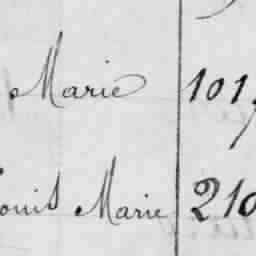 Marie 101
Louis Marie 210